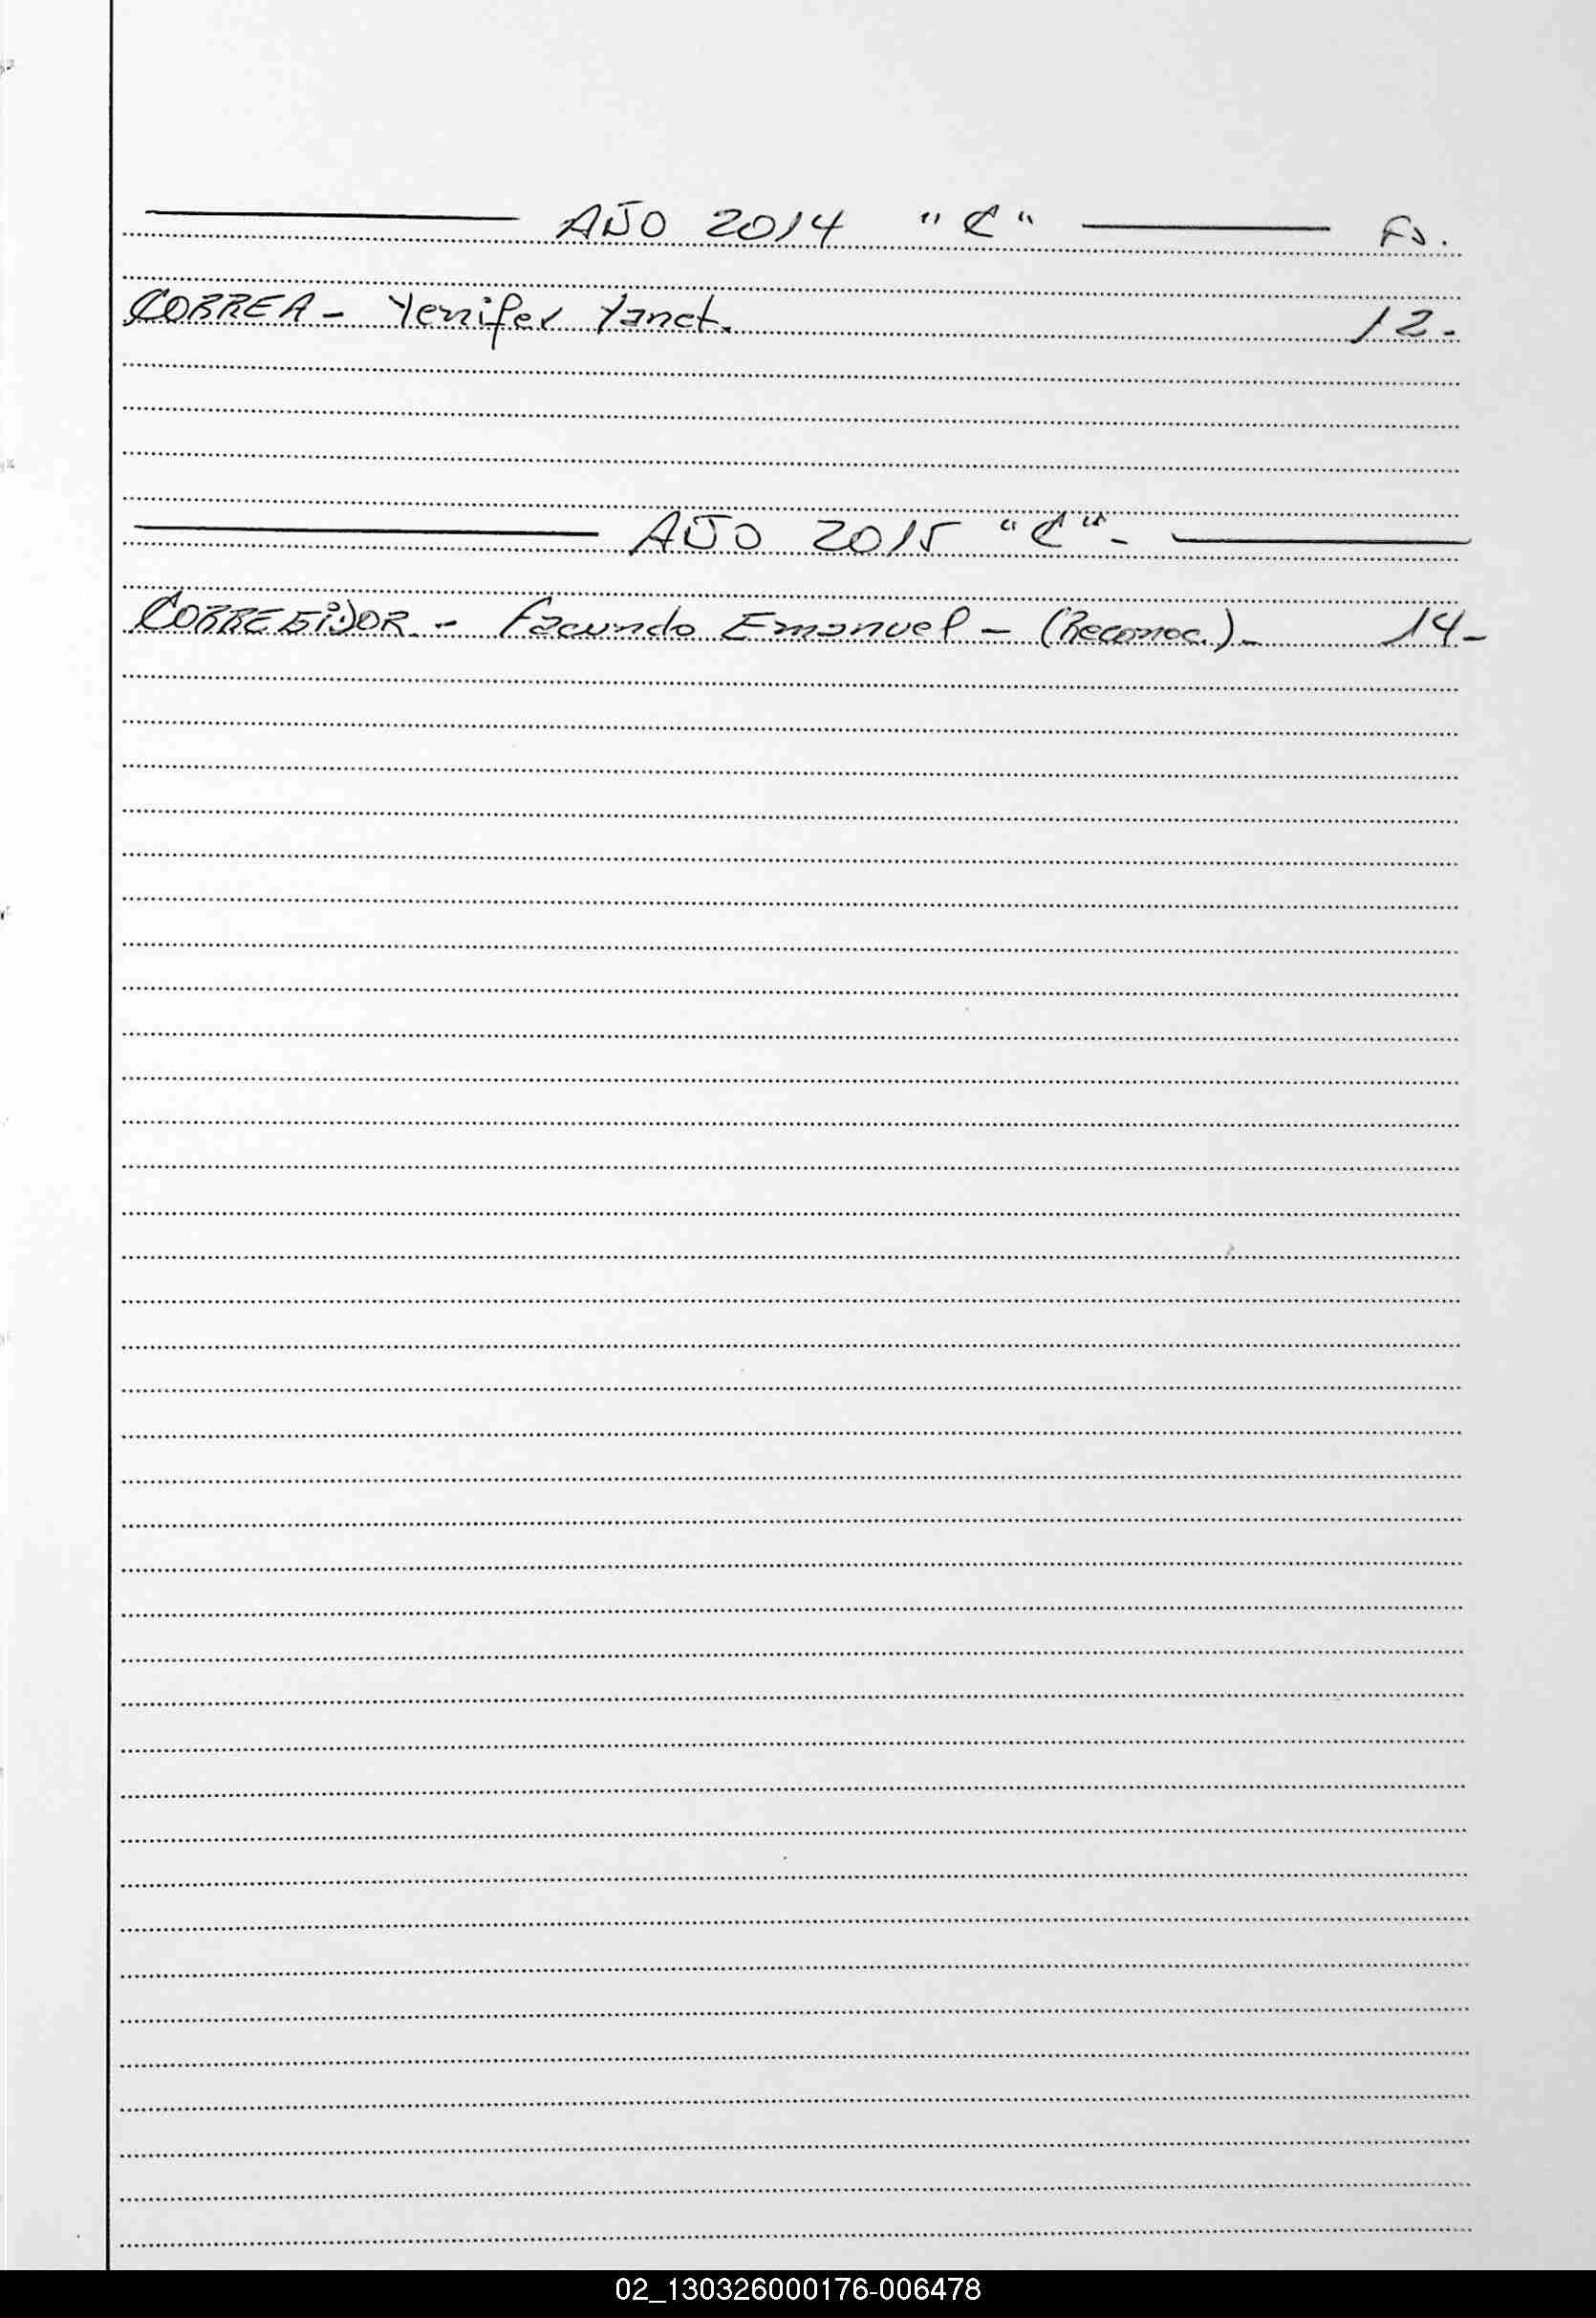 AÑO 2014 "C" Fs.
CORREA - Yenifer Yanet. 12-
AÑO 2015 "C"-
CORREGIDOR - Facundo Emanuel - (Reconoc.)- 14-
02_130326000176-006478